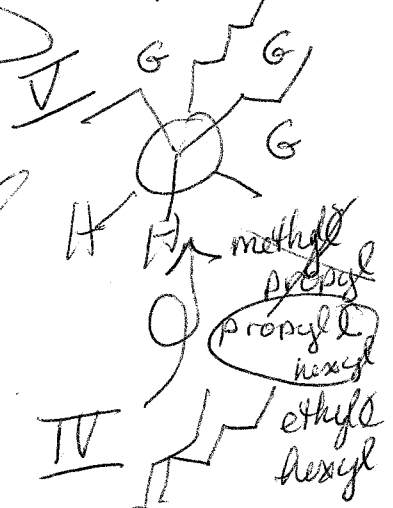 G G
V
G
H H
methyl
propyl
propyl
hexyl
IV
ethyl
hexyl